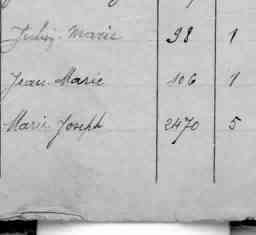 Marie 98 1
Jean-Marie 106 1
Marie Joseph 2470 5